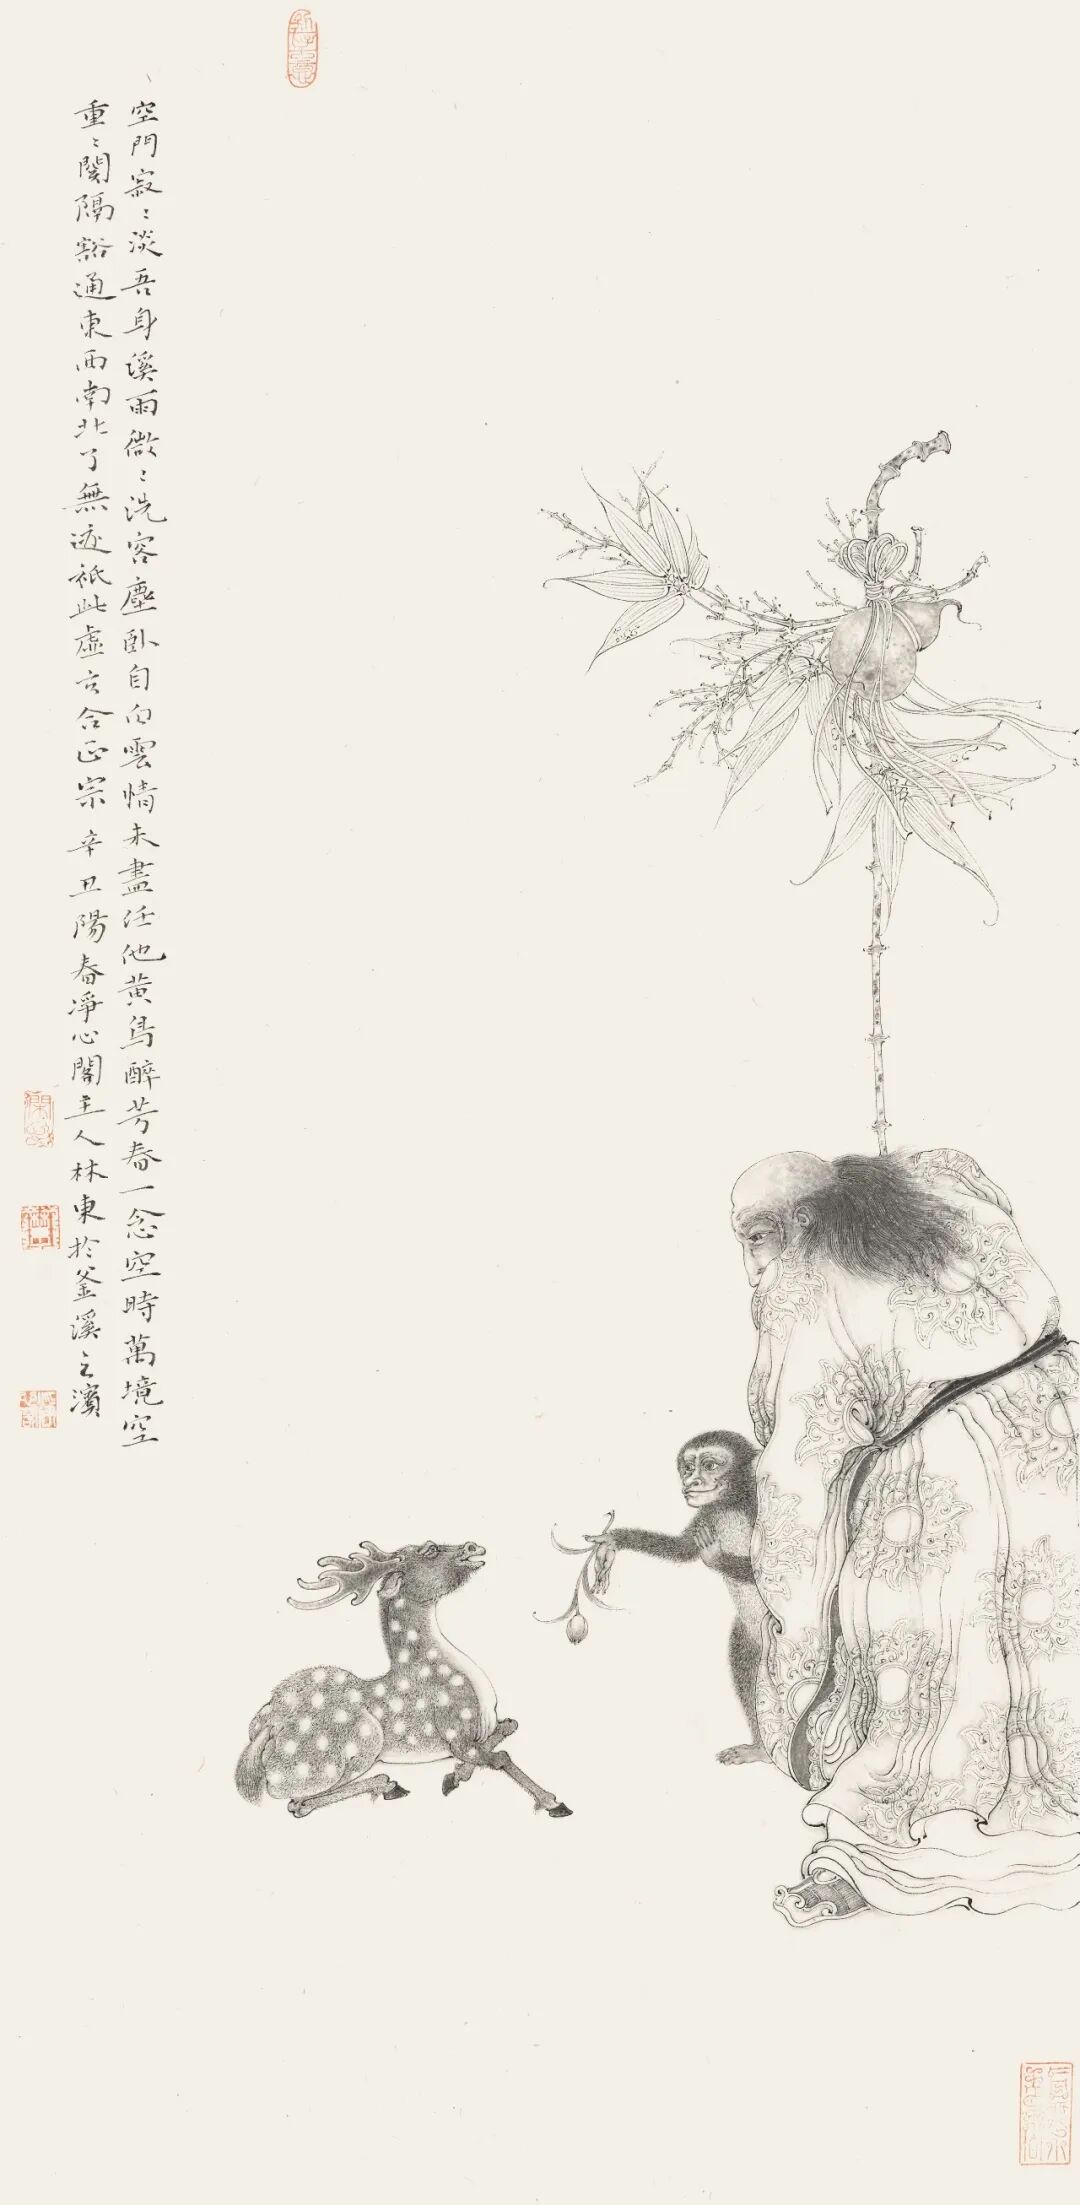 空門寂〻淡吾身溪雨微〻洗客塵臥自白雲情未盡任他黄鳥醉芳春一念空時萬境空
重〻関隔豁通東西南北了無迹祇此虛玄合正宗 辛丑陽春淨心閣主人林東於釜溪之濱